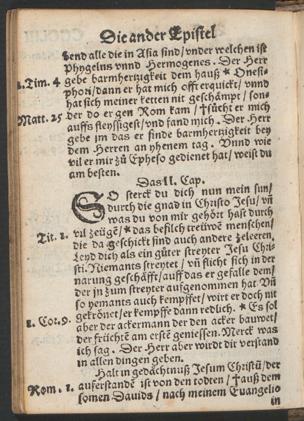 Die ander Epistel
wend alle die in Asia sind / vnder welchen ist
Phygelus vnnd Hermogenes. Der Herr
2. Tim. 4 gebe barmhertzigkeit dem hauß * Onesi-
phori / dann er hat mich offt erquickt / vnnd
hat sich meiner ketten nit geschämpt / son-
Matt. 25 der do er gen Rom kam / † sůcht er mich
auffs fleyssigest / vnd fand mich. Der Herr
gebe im das er finde barmhertzigkeit bey
dem Herren an yhenem tag. Vnnd wie
vil er mir zů Epheso gedienet hat / weist du
am besten.
Das II. Cap.
SO sterck du dich nun mein sun /
durch die gnad in Christo Jesu / vñ
was du von mir gehört hast durch
Tit. 1. vil zeügẽ / * das befilch trewẽ menschen /
die da geschickt sind auch andere zeleeren.
Leyd dich als ein gůter streyter Jesu Chri-
sti. Niemants streytet / vñ flicht sich in der
narung geschäfft / auff das er gefalle dem /
der jn zum streyter auffgenommen hat. Vñ
so yemants auch kempffet / wirt er doch nit
1. Cor. 9. gekrönet / er kempffe dann redlich. * Es sol
aber der ackermann der den acker bauwet /
der früchtẽ am erstẽ geniessen. Merck was
ich sag. Der Herr aber wirdt dir verstand
in allen dingen geben.
Halt in gedächtnuß Jesum Christũ / der
Rom. 1. auferstandẽ ist von den todten / † auß dem
somen Dauids / nach meinem Euangelio
in